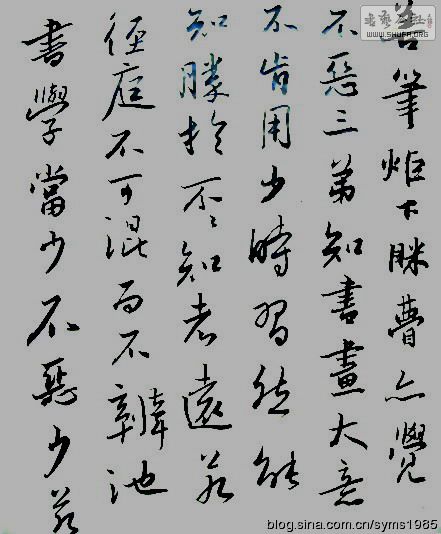 善筆炬下眯瞢亦覺
不惡三弟知書畫大意
不肯用少時習然能
知勝於不知者遠若
徑庭不可混而不辨池
書學當少不惡少若
WWW.SHUFA.ORG
blog.sina.com.cn/syms1985